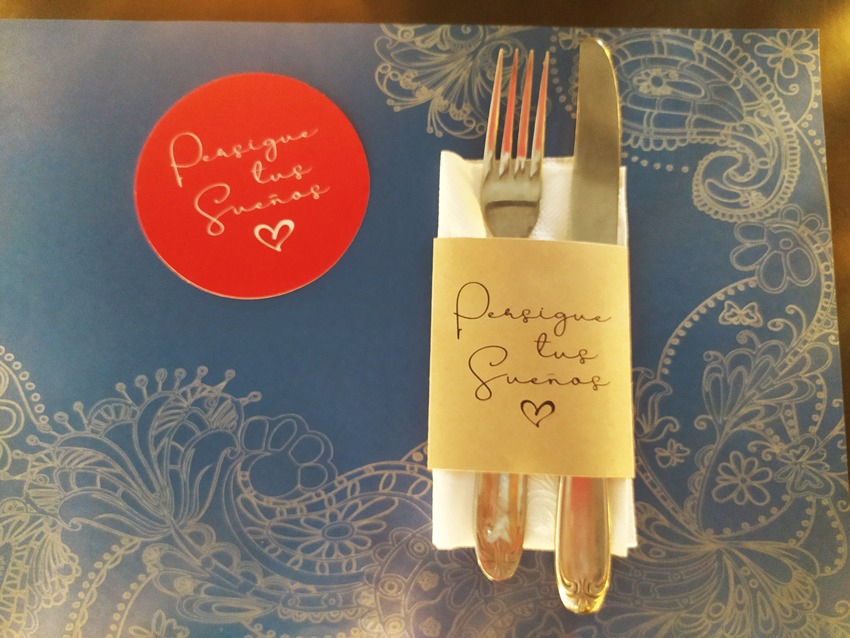 Persigue
tus
Sueños
Persigue
tus
Sueños